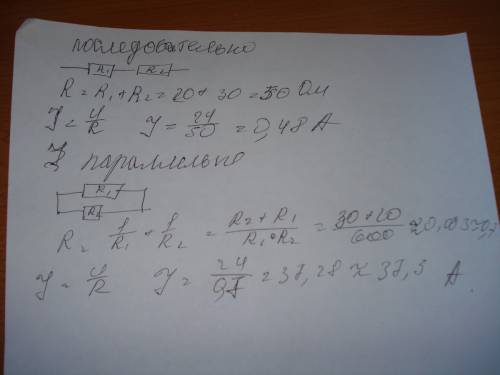 последовательно
R₁ R₂
R = R₁ + R₂ = 20 + 30 = 50 Ом
J = U/R J = 24/50 = 0,48 A
параллельно
R₁
R₂
R = 1/R₁ + 1/R₂ = (R₂ + R₁)/(R₁ * R₂) = (30 + 20)/600 ≈ 0,083
J = U/R J = 24/ = 37,28 ≈ 37,3 A